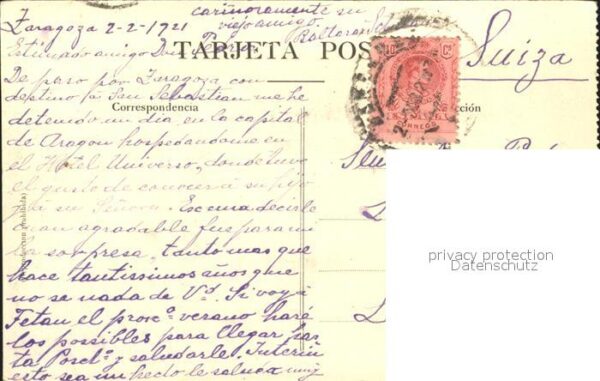 Zaragoza 2-2-1921
cariñosamente su
viejo amigo
Estimado amigo Don
TARJETA POS
Suiza
De paso por Zaragoza con
destino a San Sebastian me he
Correspondencia
cción
detenido un dia, en la capital
de Aragon hospedandome en
el Hotel Universo, donde tuve
el gusto de conocer a su hijo
y a su Señora. Es cuma decirle
cuan agradable fue para mi
la sorpresa, tanto mas que
hace tantissimos años que
no se nada de Vd. Si voy a
Fetan el proxº verano haré
los posibles para llegar has
ta Poschº y saludarle. Interin
esto sea un hecho le saluda muy
(Reproducción prohibida)
10 Cs
CORREOS
privacy protection
Datenschutz